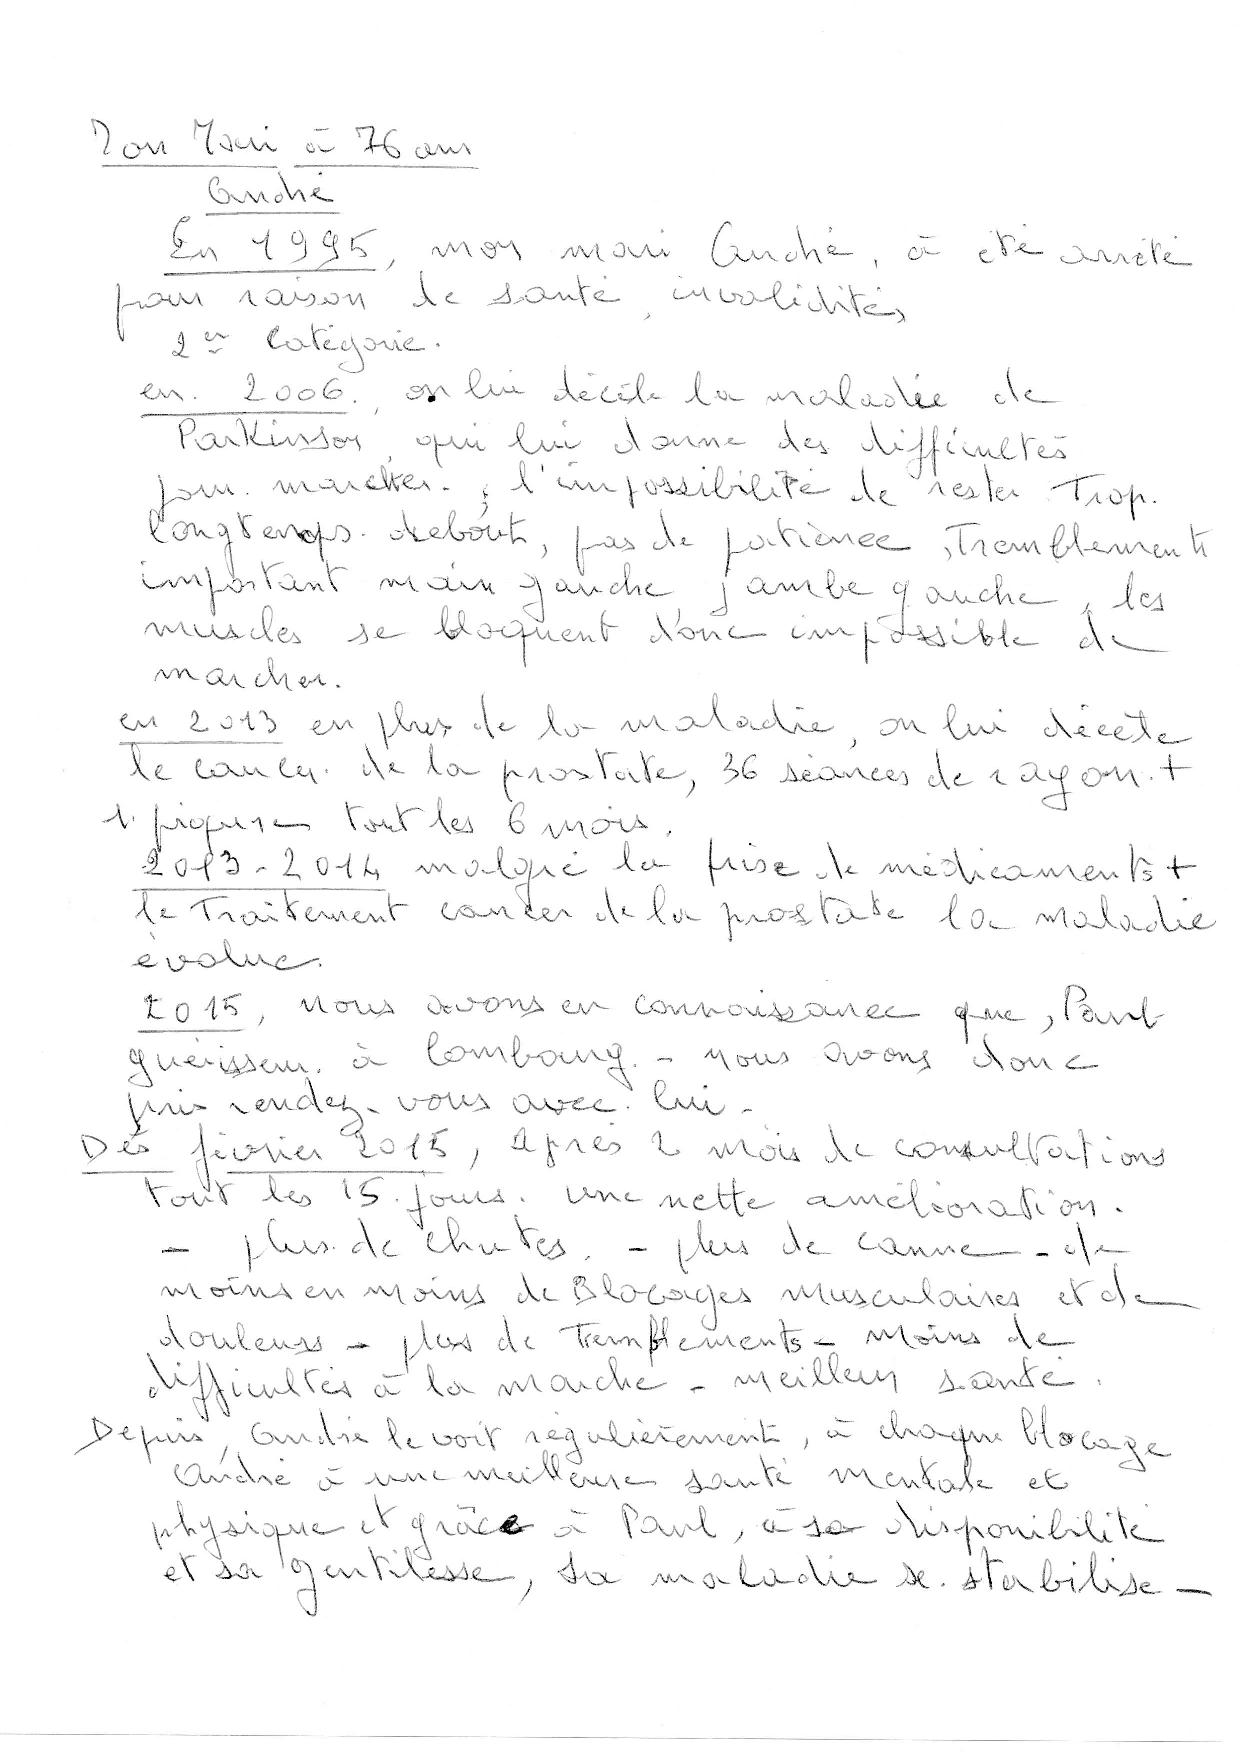 Mon Mari à 76 ans
André
En 1995, mon mari André, à été arrêté
pour raison de santé, invalidités,
2er Catégorie.
en. 2006., on lui décèle la maladie de
Parkinson, qui lui donne des difficultés
pour. marcher. ; l'impossibilité de rester Trop.
longtemps. debout, pas de patience, Tremblements
important main gauche, jambe gauche, les
muscles se bloquent donc impossible de
marcher.
en 2013 en plus de la maladie, on lui décète
le cancer. de la prostate, 36 séances de rayon. +
1. piqure tout les 6 mois.
2013-2014 malgré la prise de médicaments +
le Traitement cancer de la prostate la maladie
évolue.
2015, nous avons en connaissance que, Paul
guérisseur. à Lombourg. - nous avons donc
pris rendez-vous avec. lui -
Dès février 2015, après 2 mois de consultations
tout les 15. jours. une nette amélioration.
- plus. de chutes. - plus de canne - de
moins en moins de Blocages musculaires et de
douleurs - plus de Tremblements - moins de
difficultés à la marche - meilleur santé.
Depuis, André le voit régulièrement, à chaque blocage
André à une meilleure santé mentale et
physique et grâce à Paul, à sa disponibilité
et sa gentilesse, sa maladie se. stabilise -